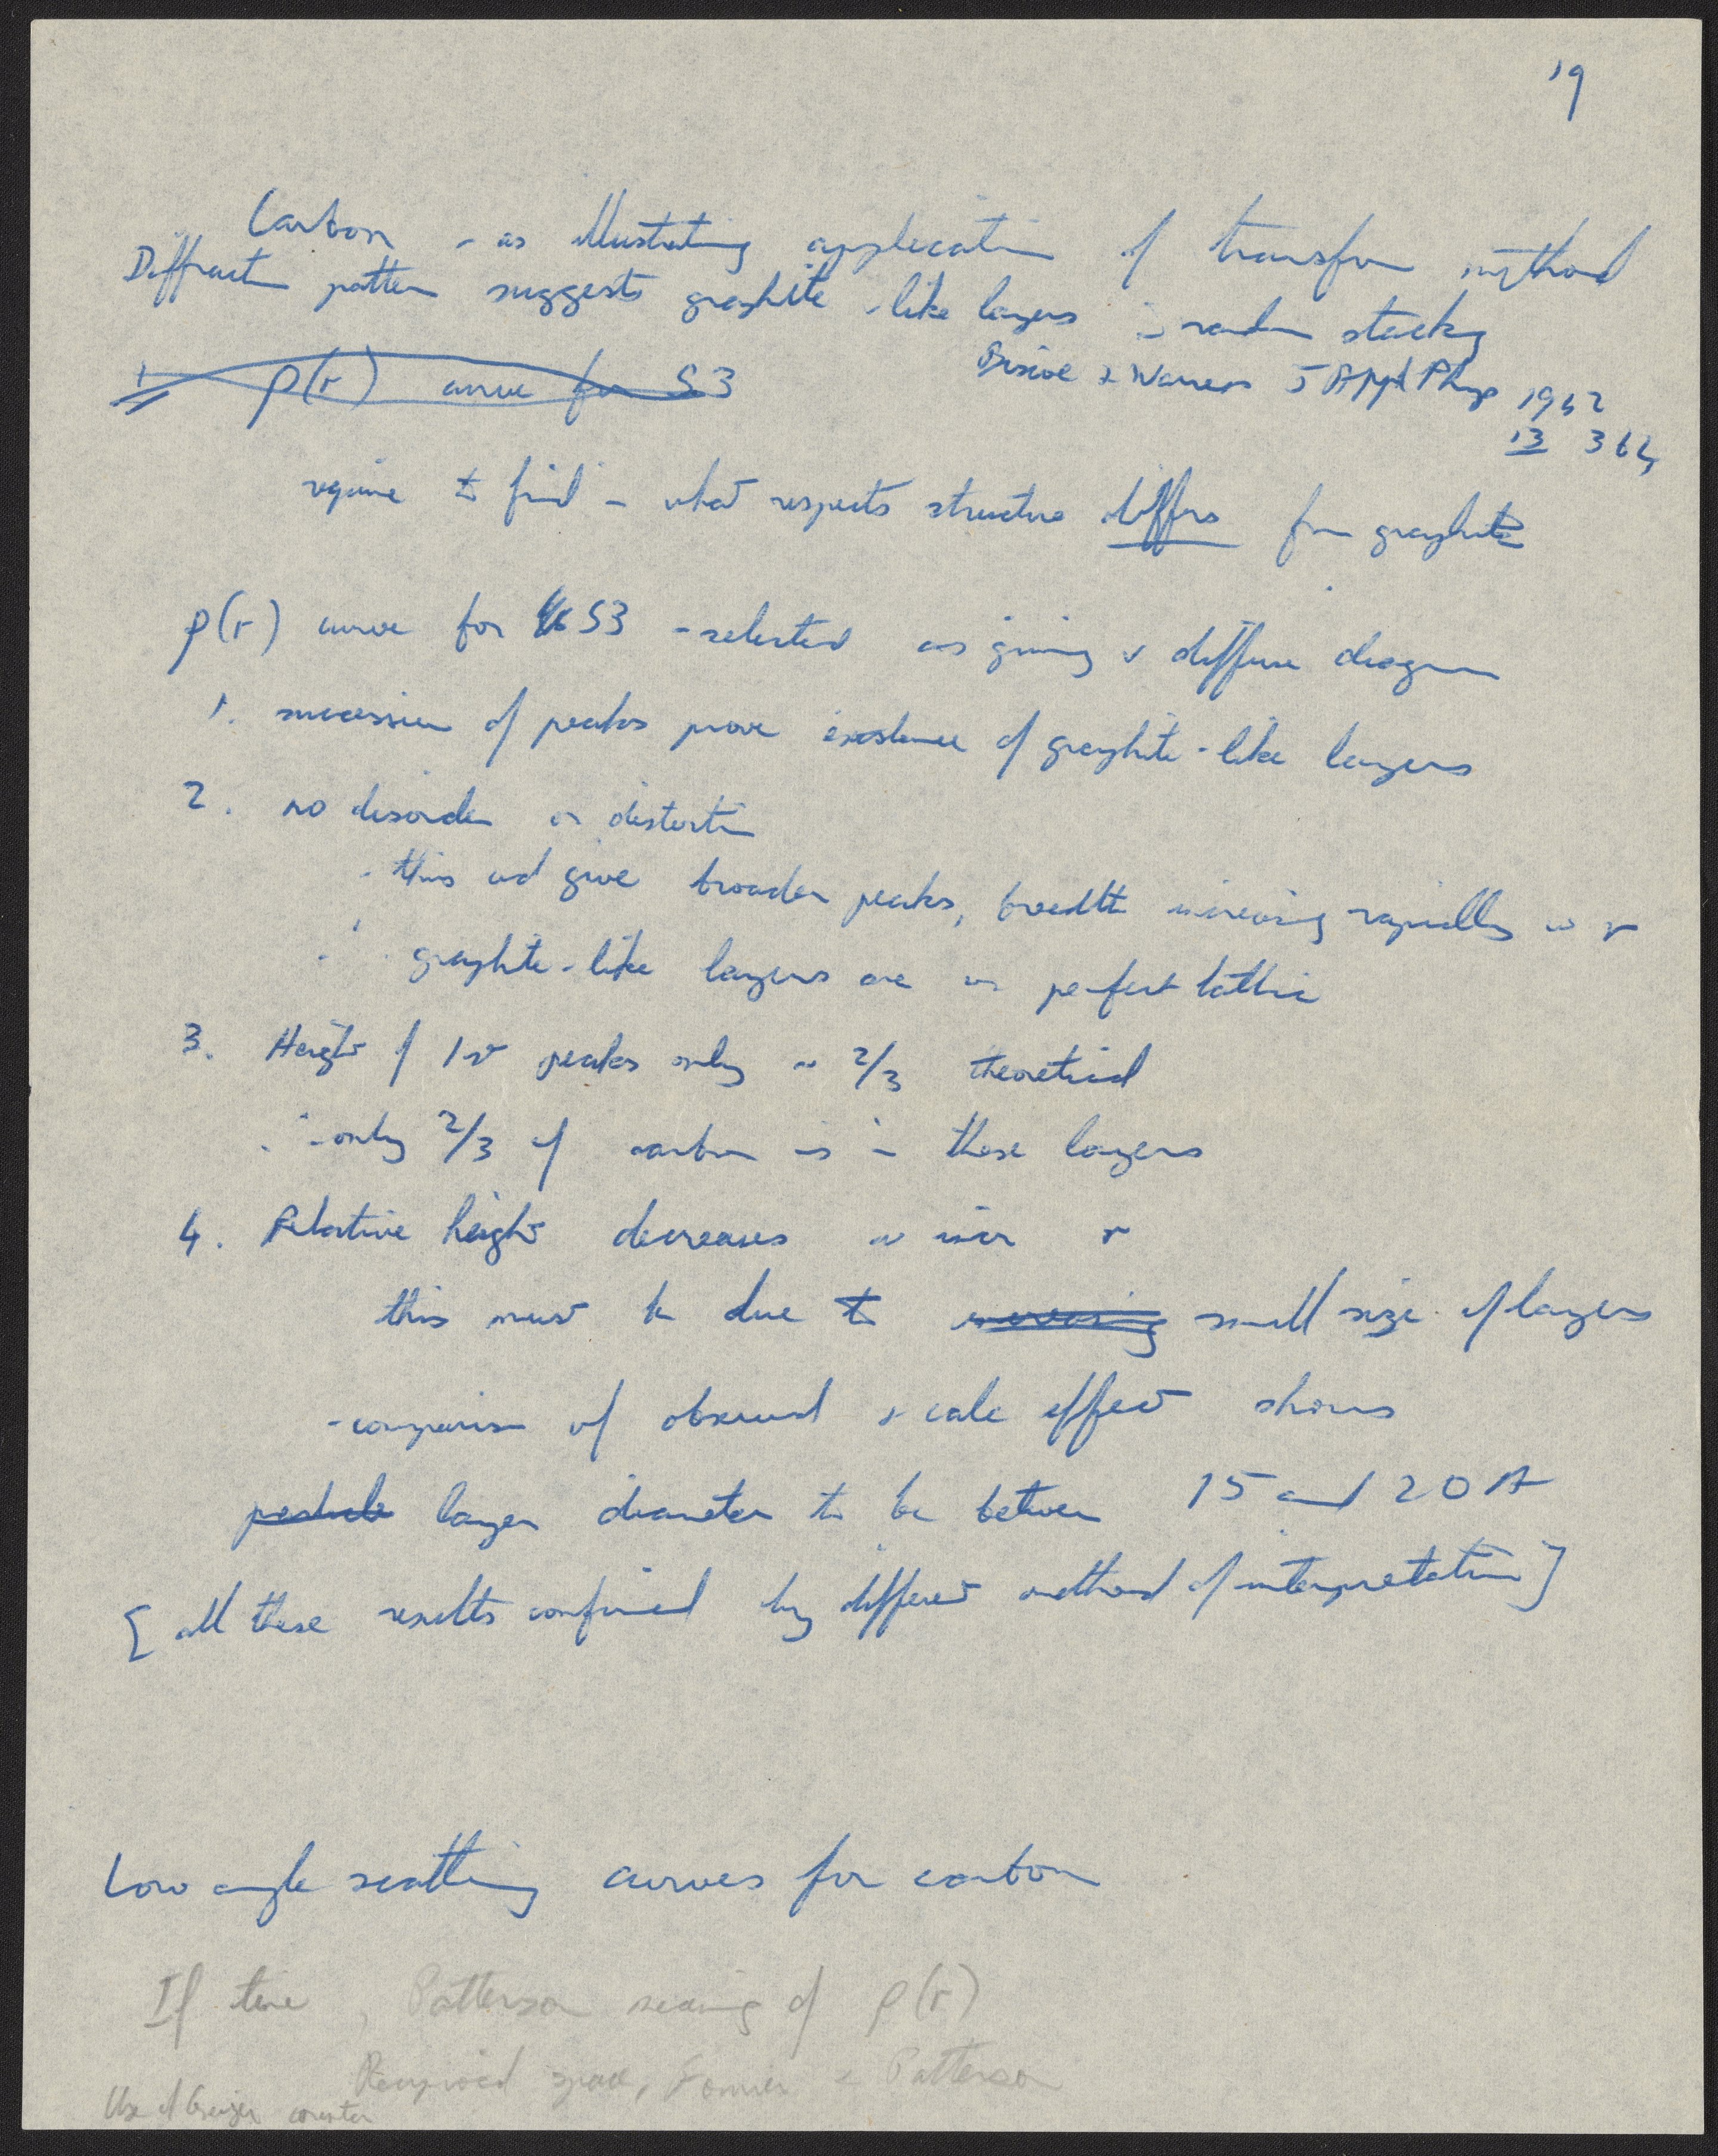 19
Carbon - as illustrating application of transform method
Diffraction pattern suggests graphite-like layers in random stacking
ρ(r) curve for S3
Biscoe & Warren J Appl Phys 1942
13 364
require to find in what respects structure differs from graphite
ρ(r) curve for S3 - selected as giving v diffuse diagram
1. succession of peaks prove existence of graphite-like layers
2. no disorder or distortion
- this wd give broader peaks, breadth increasing rapidly w r
∴ graphite-like layers are in perfect lattice
3. Height of 1st peaks only ~ 2/3 theoretical
∴ only 2/3 of carbon is in these layers
4. Relative height decreases w incr r
this must be due to increasing small size of layers
- comparison of observed & calc effect shows
particle layer diameter to be between 15 and 20 A
[all these results confirmed by different method of interpretation]
Low angle scattering curves for carbon
If time, Patterson meaning of ρ(r)
Reciprocal space, Fourier & Patterson
Use of Geiger counter